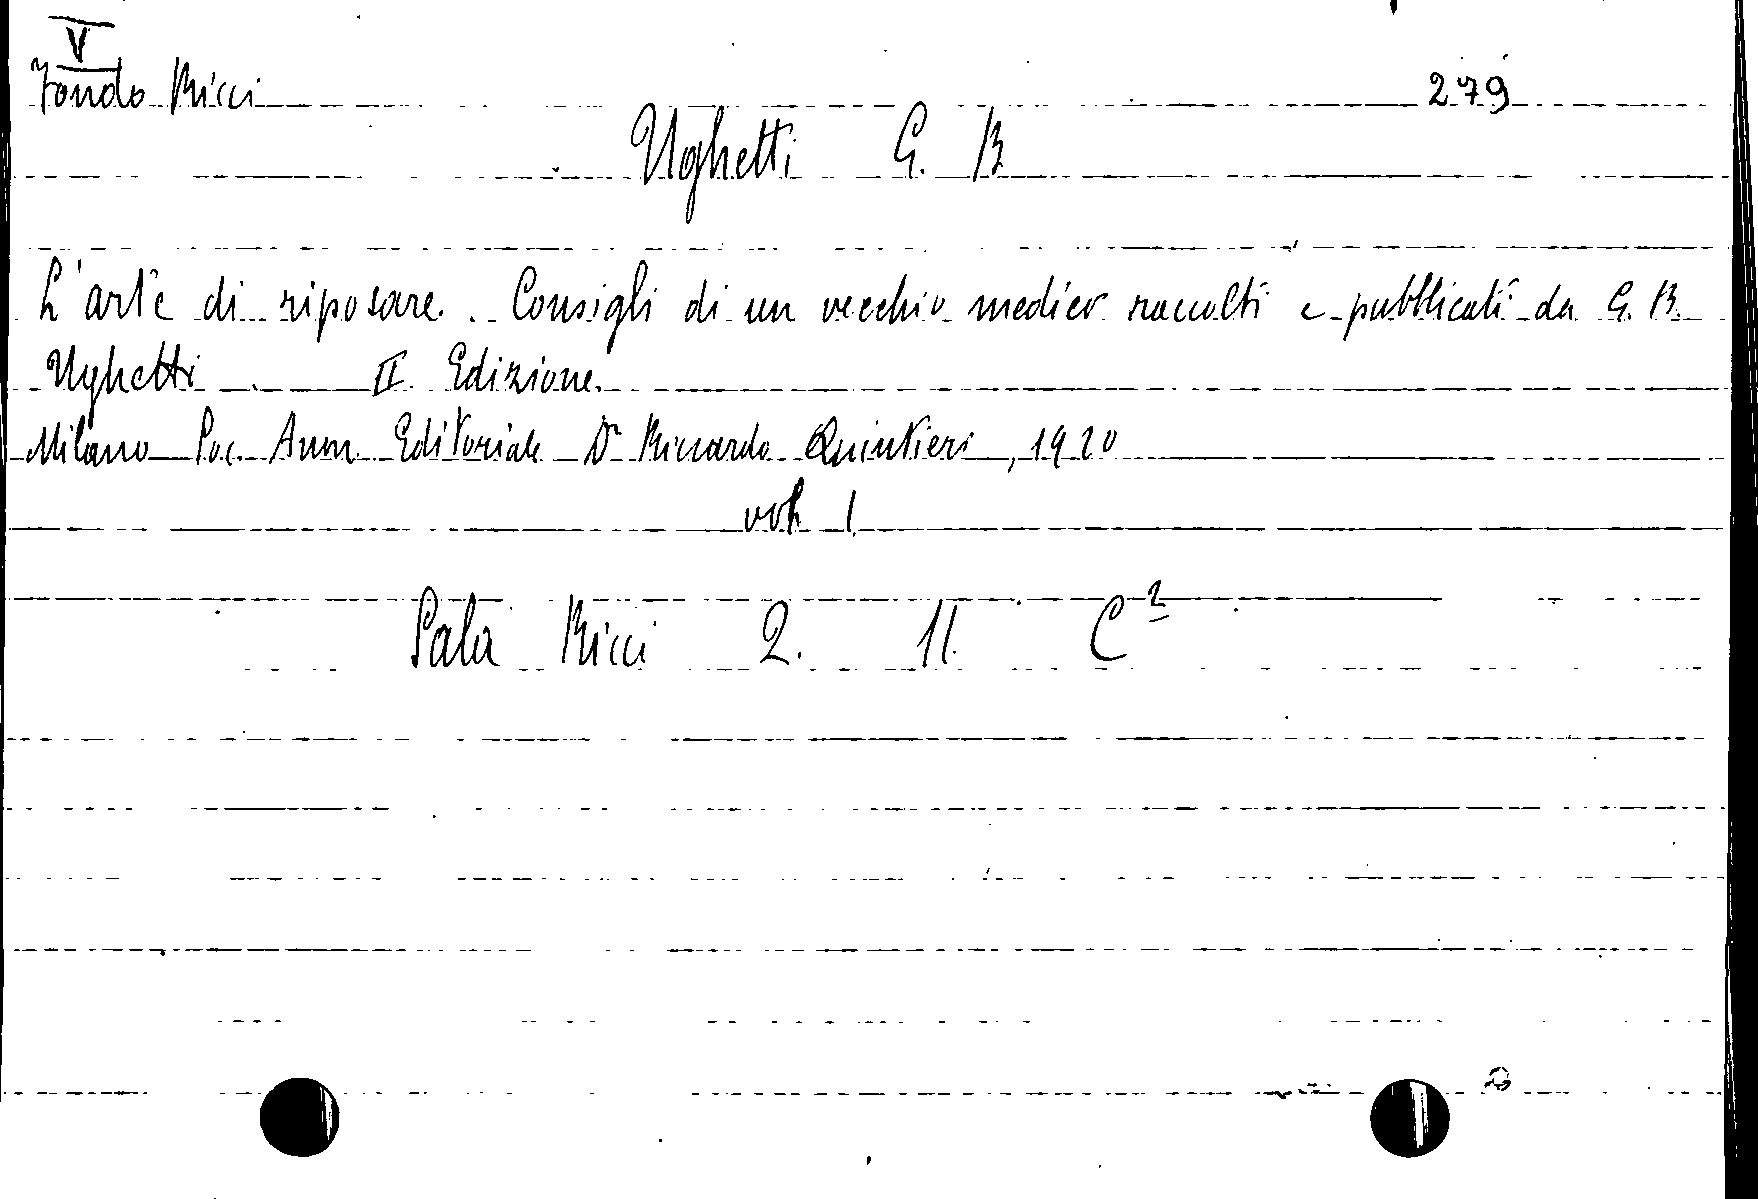 V
Fondo Ricci 279
Ughetti G. B.
L'arte di riposare. Consigli di un vecchio medico raccolti e pubblicati da G. B.
Ughetti II Edizione.
Milano Soc. Anon. Editoriale Dr Riccardo Quintieri, 1920
vol. 1
Sala Ricci 2. 11. C²